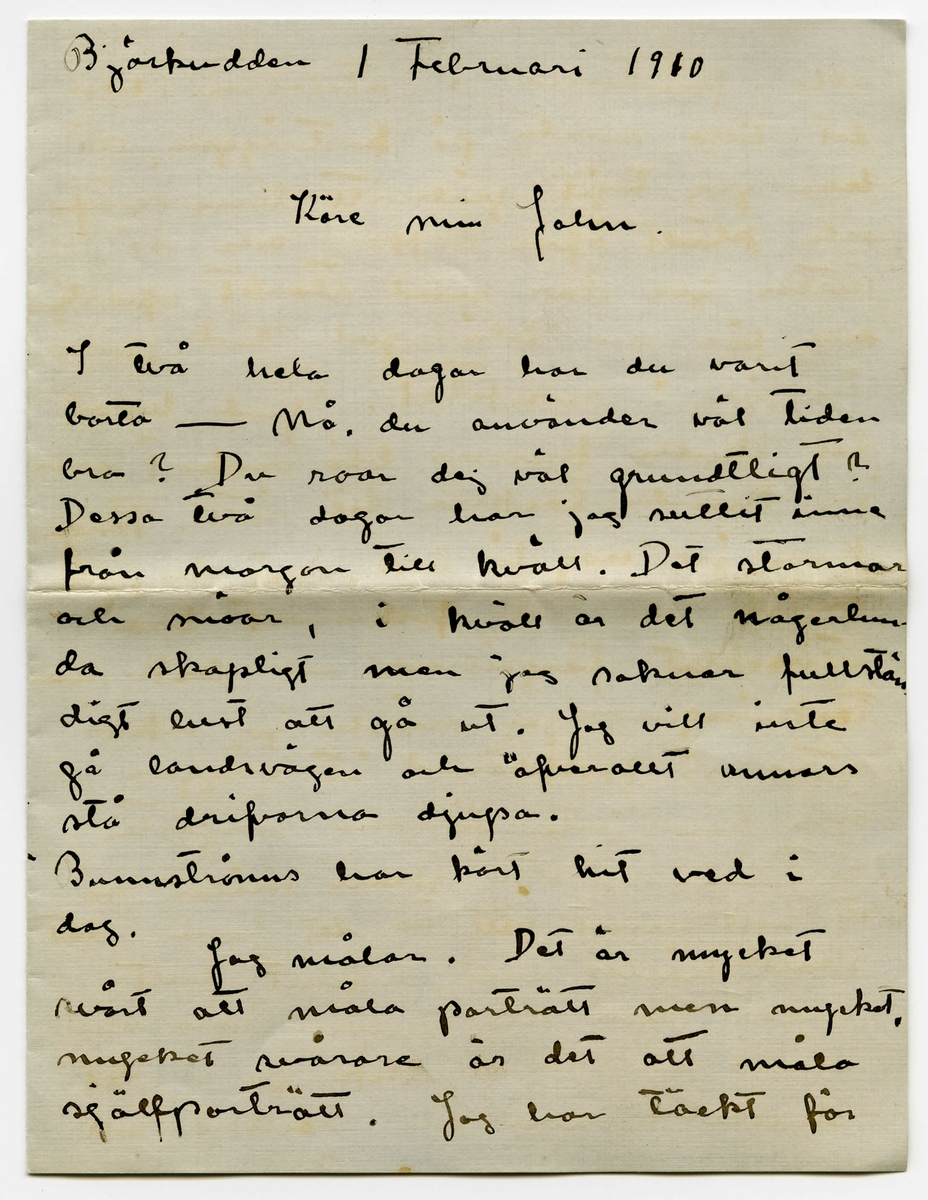 Björkudden 1 Februari 1910
Käre min John.
I två hela dagar har du varit
borta — Nå, du använder väl tiden
bra? Du roar dej väl grundtligt?
Dessa två dagar har jag suttit inne
från morgon till kväll. Det stormar
och snöar, i kväll är det någerlun-
da skapligt men jag saknar fullstän
digt lust att gå ut. Jag vill inte
gå landsvägen och öfverallt annars
stå drifvorna djupa.
Bumströms har kört hit ved i
dag.
Jag målar. Det är mycket
svårt att måla porträtt men mycket,
mycket svårare är det att måla
självporträtt. Jag har täckt för